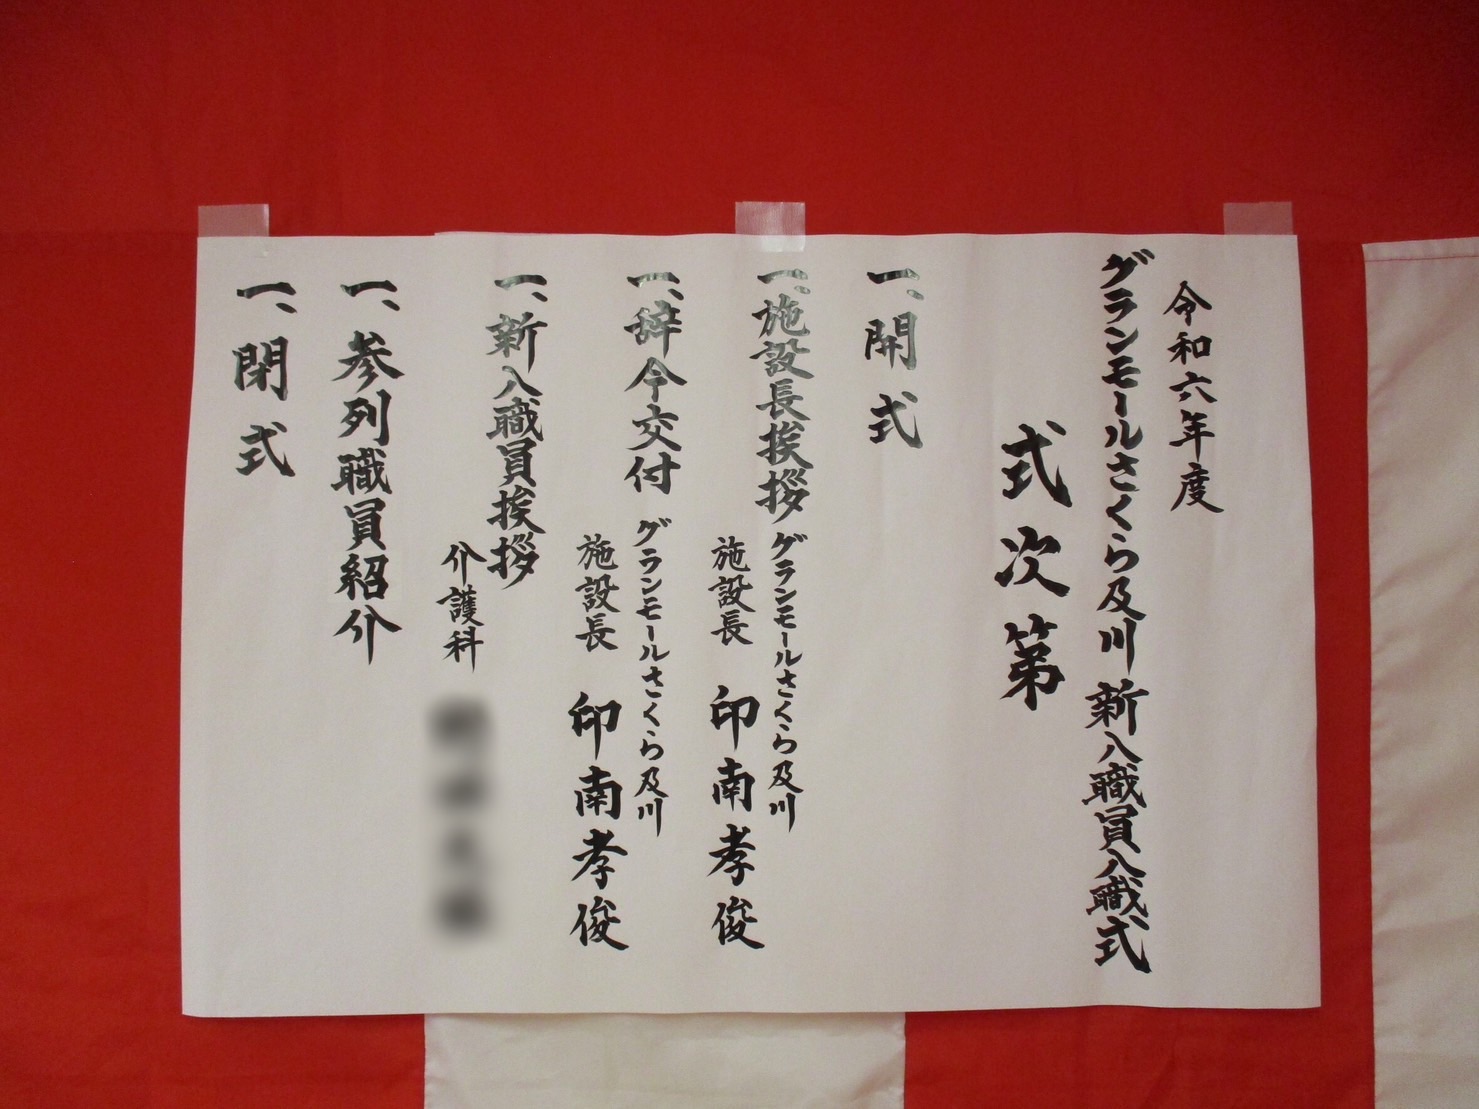 令和六年度
グランモールさくら及川 新入職員入職式
式次第
一、開式
一、施設長挨拶 グランモールさくら及川
施設長 印南孝俊
一、辞令交付 グランモールさくら及川
施設長 印南孝俊
一、新入職員挨拶
介護科
一、参列職員紹介
一、閉式